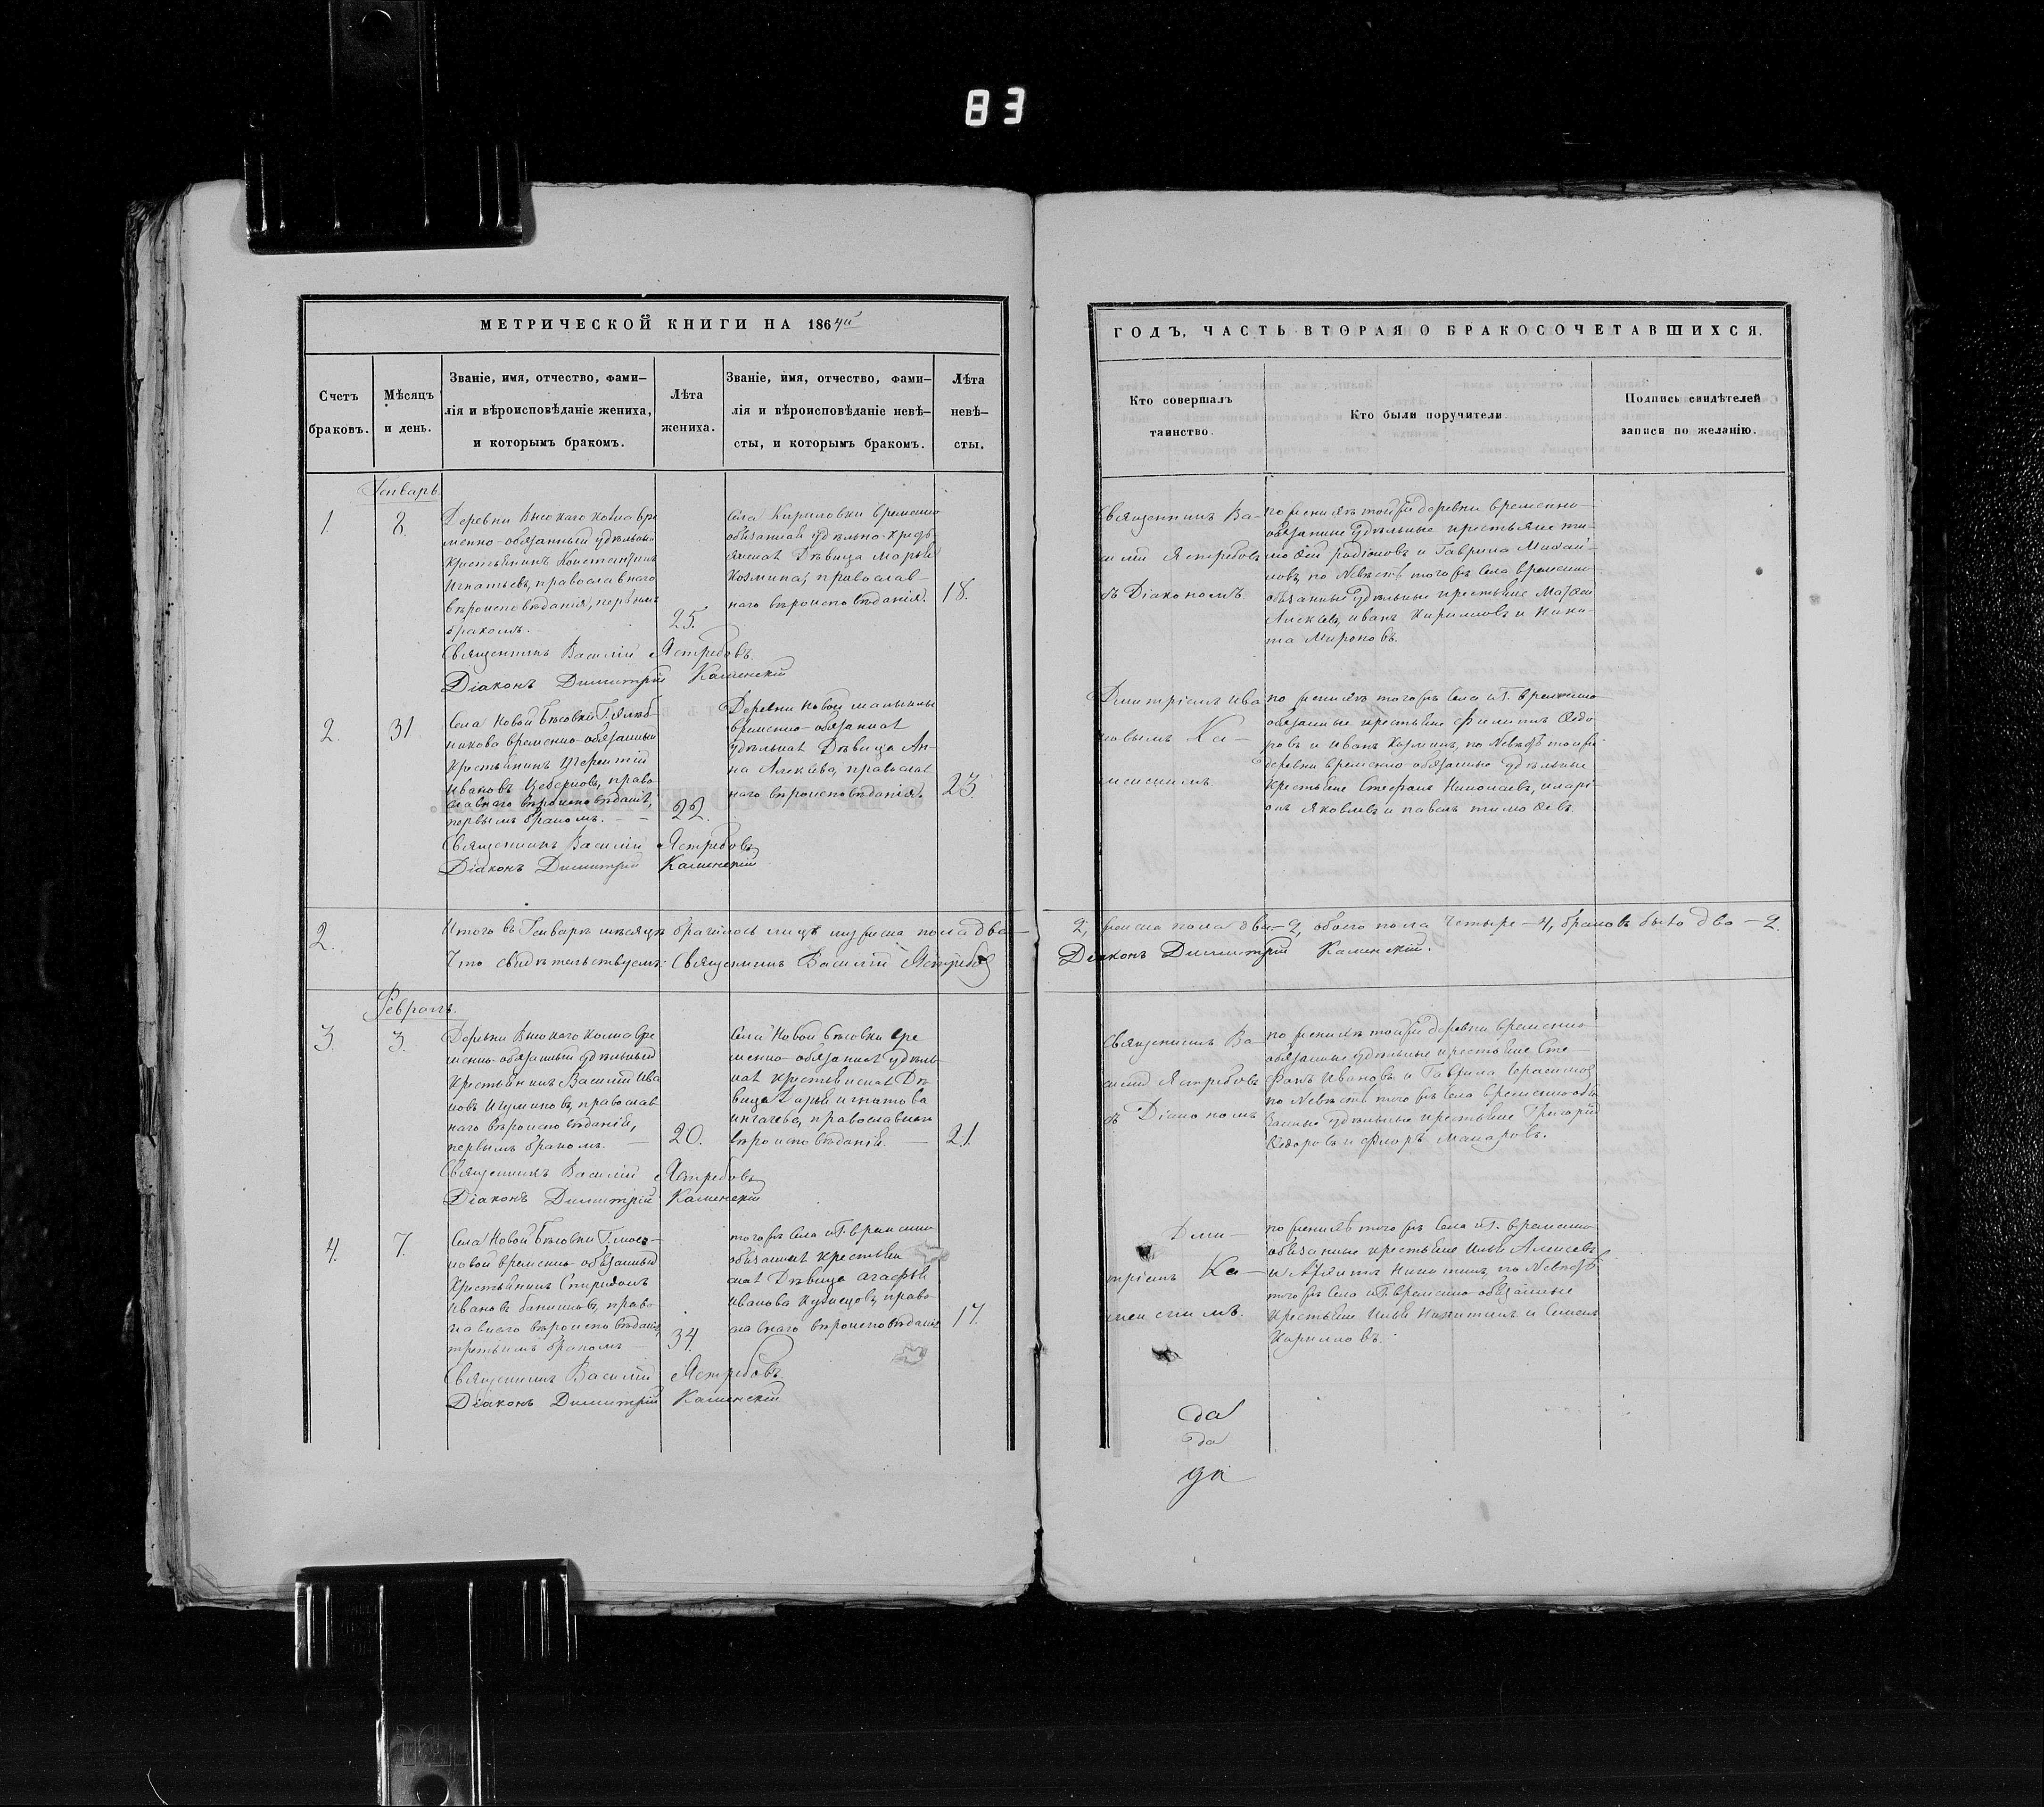 83
МЕТРИЧЕСКОЙ КНИГИ НА 1864й
Счетъ браковъ.
Мѣсяцъ и день.
Званіе, имя, отчество, фами-
лія и вѣроисповѣданіе жениха,
и которымъ бракомъ.
Лѣта жениха.
Званіе, имя, отчество, фами-
лія и вѣроисповѣданіе невѣ-
сты, и которымъ бракомъ.
Лѣта невѣ-
сты.
Генварь.
1.
8.
Деревни Высокаго колка вре
менно-обязанный удѣльный
крестьянинъ Константинъ
Игнатьевъ, православнаго
вѣроисповѣданія, первымъ
бракомъ.
25.
Села Кириловки временно
обязанная удѣльно-кресть
янская Дѣвица Марья
Козмина, православ-
наго вѣроисповѣданія.
18.
Священникъ Василій Ястребовъ.
Діаконъ Димитрій Каменскій
2.
31
Села Новой Бѣсовки Г.
временно-обязанный
крестьянинъ Терентій
Ивановъ право
славнаго вѣроисповѣданія,
первымъ бракомъ. — —
22.
Деревни Новой
временно-обязанная
удѣльная Дѣвица Ан-
на Алексѣева, православ
наго вѣроисповѣданія.
23.
Священникъ Василій Ястребовъ
Діаконъ Димитрій Каменскій
2.
Итого въ Генварѣ мѣсяцѣ бракилось лицъ мужеска пола два —
Что свидѣтельствуемъ: Священникъ Василій Ястребовъ
Февраль.
3.
3.
Деревни Высокаго колка вре
менно-обязанный удѣльный
крестьянинъ Василій Ива
новъ православ
наго вѣроисповѣданія,
первымъ бракомъ. —
20.
Села Новой Бѣсовки вре
менно-обязанная удѣль
ная крестьянская Дѣ
вица Дарья Игнатова
православнаго
вѣроисповѣданія. —
21.
Священникъ Василій Ястребовъ
Діаконъ Димитрій Каменскій
4.
7.
Села Новой Бѣсовки
временно-обязанный
крестьянинъ Спиридонъ
Ивановъ право
славнаго вѣроисповѣданія,
третьимъ бракомъ —
34.
того жъ села и Г. временно
обязанная крестьян
ская Дѣвица Агафья
Иванова Кузнецова, право
славнаго вѣроисповѣданія
17.
Священникъ Василій Ястребовъ
Діаконъ Димитрій Каменскій
ГОДЪ, ЧАСТЬ ВТОРАЯ О БРАКОСОЧЕТАВШИХСЯ.
Кто совершалъ
таинство.
Кто были поручители
Подпись свидѣтелей
записи по желанію.
Священникъ Ва-
силій Ястребовъ
съ Діакономъ
по женихѣ той же деревни временно-
обязанные удѣльные крестьяне Ти-
мофей Родіоновъ и Гаврила Михай-
ловъ, по невѣстѣ того жъ села временно
обязанные удѣльные крестьяне Матвѣй
Алексѣевъ, Иванъ Кириловъ и Ники-
та Мироновъ.
Дмитріемъ Ива
новымъ Ка-
менскимъ
по женихѣ того жъ села и Г. временно
обязанные крестьяне Филиппъ Ѳедо
ровъ и Иванъ Кузминъ, по невѣстѣ той же
деревни временно-обязанные удѣльные
крестьяне Стефанъ Николаевъ, Иларі
онъ Яковлевъ и Павелъ Тимофеевъ.
2, женска пола два — 2, обоего пола четыре — 4, браковъ было два — 2.
Діаконъ Димитрій Каменскій.
Священникъ Ва
силій Ястребовъ
съ Діакономъ
по женихѣ той же деревни временно
обязанные удѣльные крестьяне Сте-
фанъ Ивановъ и Гаврила Герасимовъ
по невѣстѣ того жъ села временно-обя
занные удѣльные крестьяне Григорій
Ѳедоровъ и Флоръ Макаровъ.
Дми-
тріемъ Ка-
менскимъ.
по женихѣ того жъ села и Г. временно
обязанные крестьяне Илья Алексѣевъ
и Никитинъ, по невѣстѣ
того жъ села и Г. временно-обязанные
крестьяне Илья Никитинъ и Семенъ
Кириловъ.
да
да